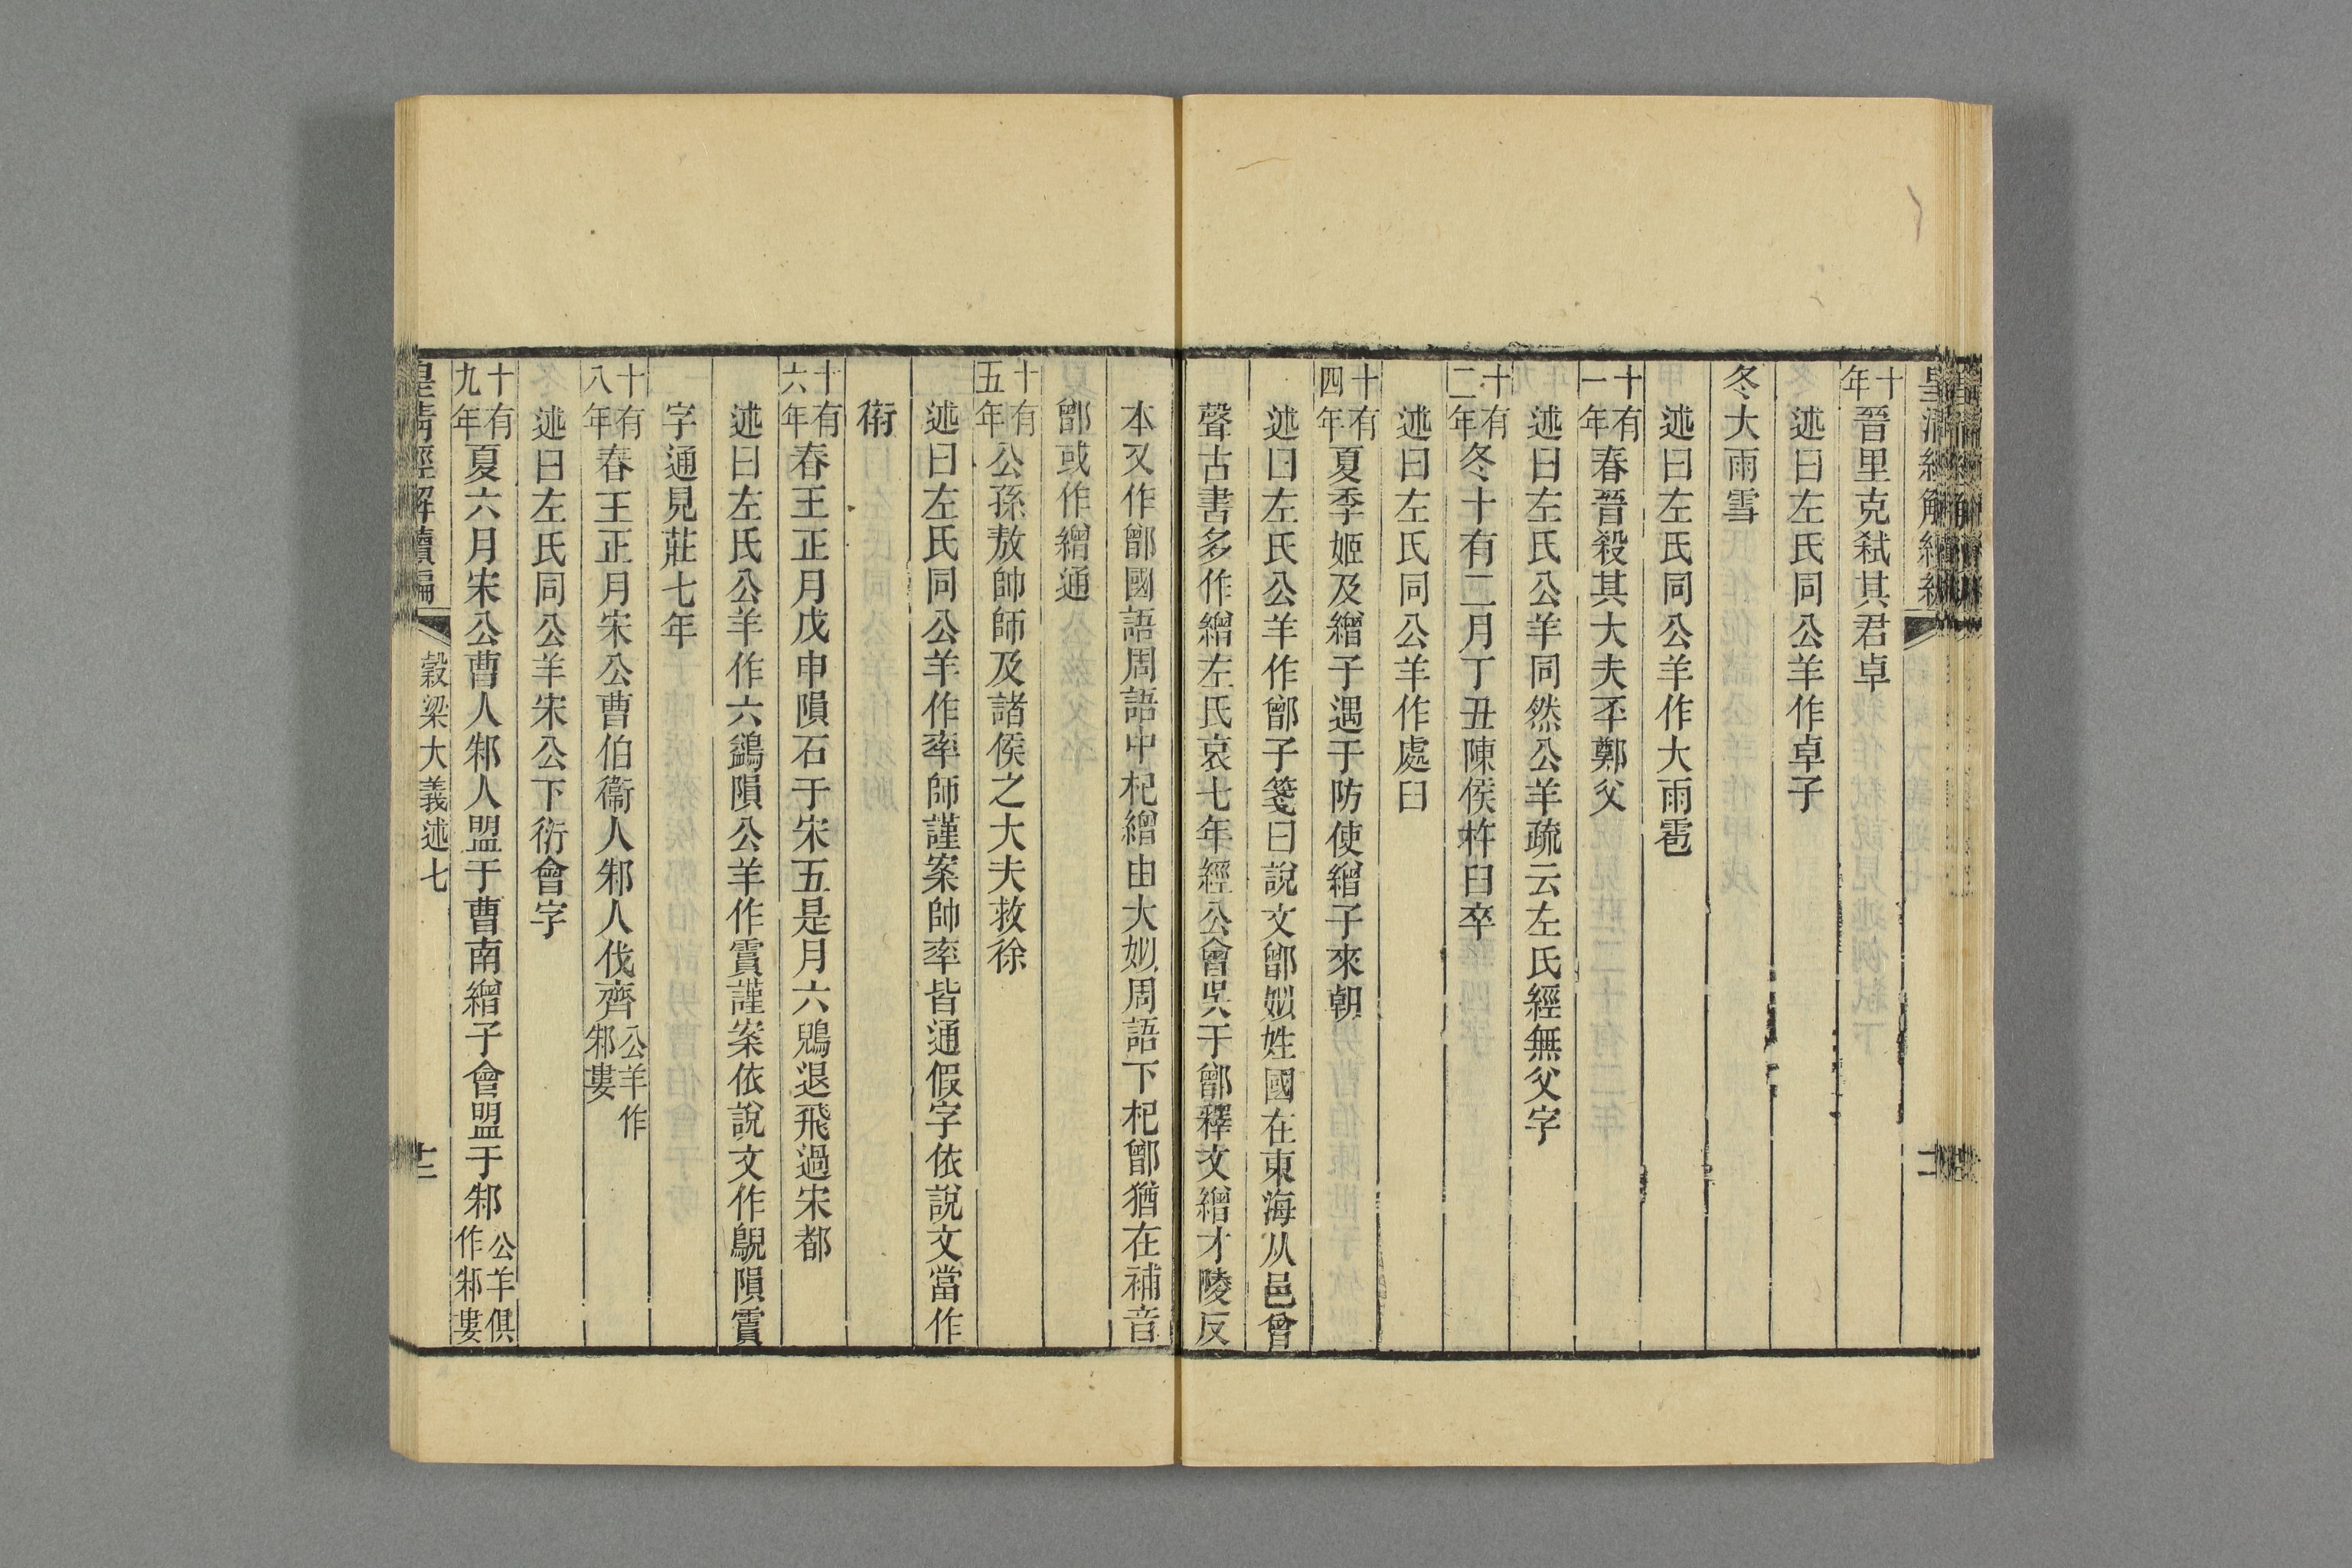 十年晉里克弑其君卓
述曰左氏同公羊作卓子
冬大雨雪
述曰左氏同公羊作大雨雹
十有一年春晉殺其大夫㔻鄭父
述曰左氏公羊同然公羊疏云左氏經無父字
十有二年冬十有二月丁丑陳侯杵臼卒
述曰左氏同公羊作處臼
十有四年夏季姬及繒子遇于防使繒子來朝
述曰左氏公羊作鄫子箋曰說文鄫姒姓國在東海从邑曾
聲古書多作繒左氏哀七年經公會吳于鄫釋文繒才陵反
本又作鄫國語周語中杞繒由大姒周語下杞鄫猶在補音
鄫或作繒通
十有五年公孫敖帥師及諸侯之大夫救徐
述曰左氏同公羊作率師謹案帥率皆通假字依說文當作
䘏
十有六年春王正月戊申隕石于宋五是月六鶂退飛過宋都
述曰左氏公羊作六鷁隕公羊作霣謹案依說文作鶃隕霣
字通見莊七年
十有八年春王正月宋公曹伯衞人邾人伐齊公羊作邾婁
述曰左氏同公羊宋公下衍會字
十有九年夏六月宋公曹人邾人盟于曹南繒子會盟于邾公羊俱作邾婁
皇清經解續編 穀梁大義述七 十二